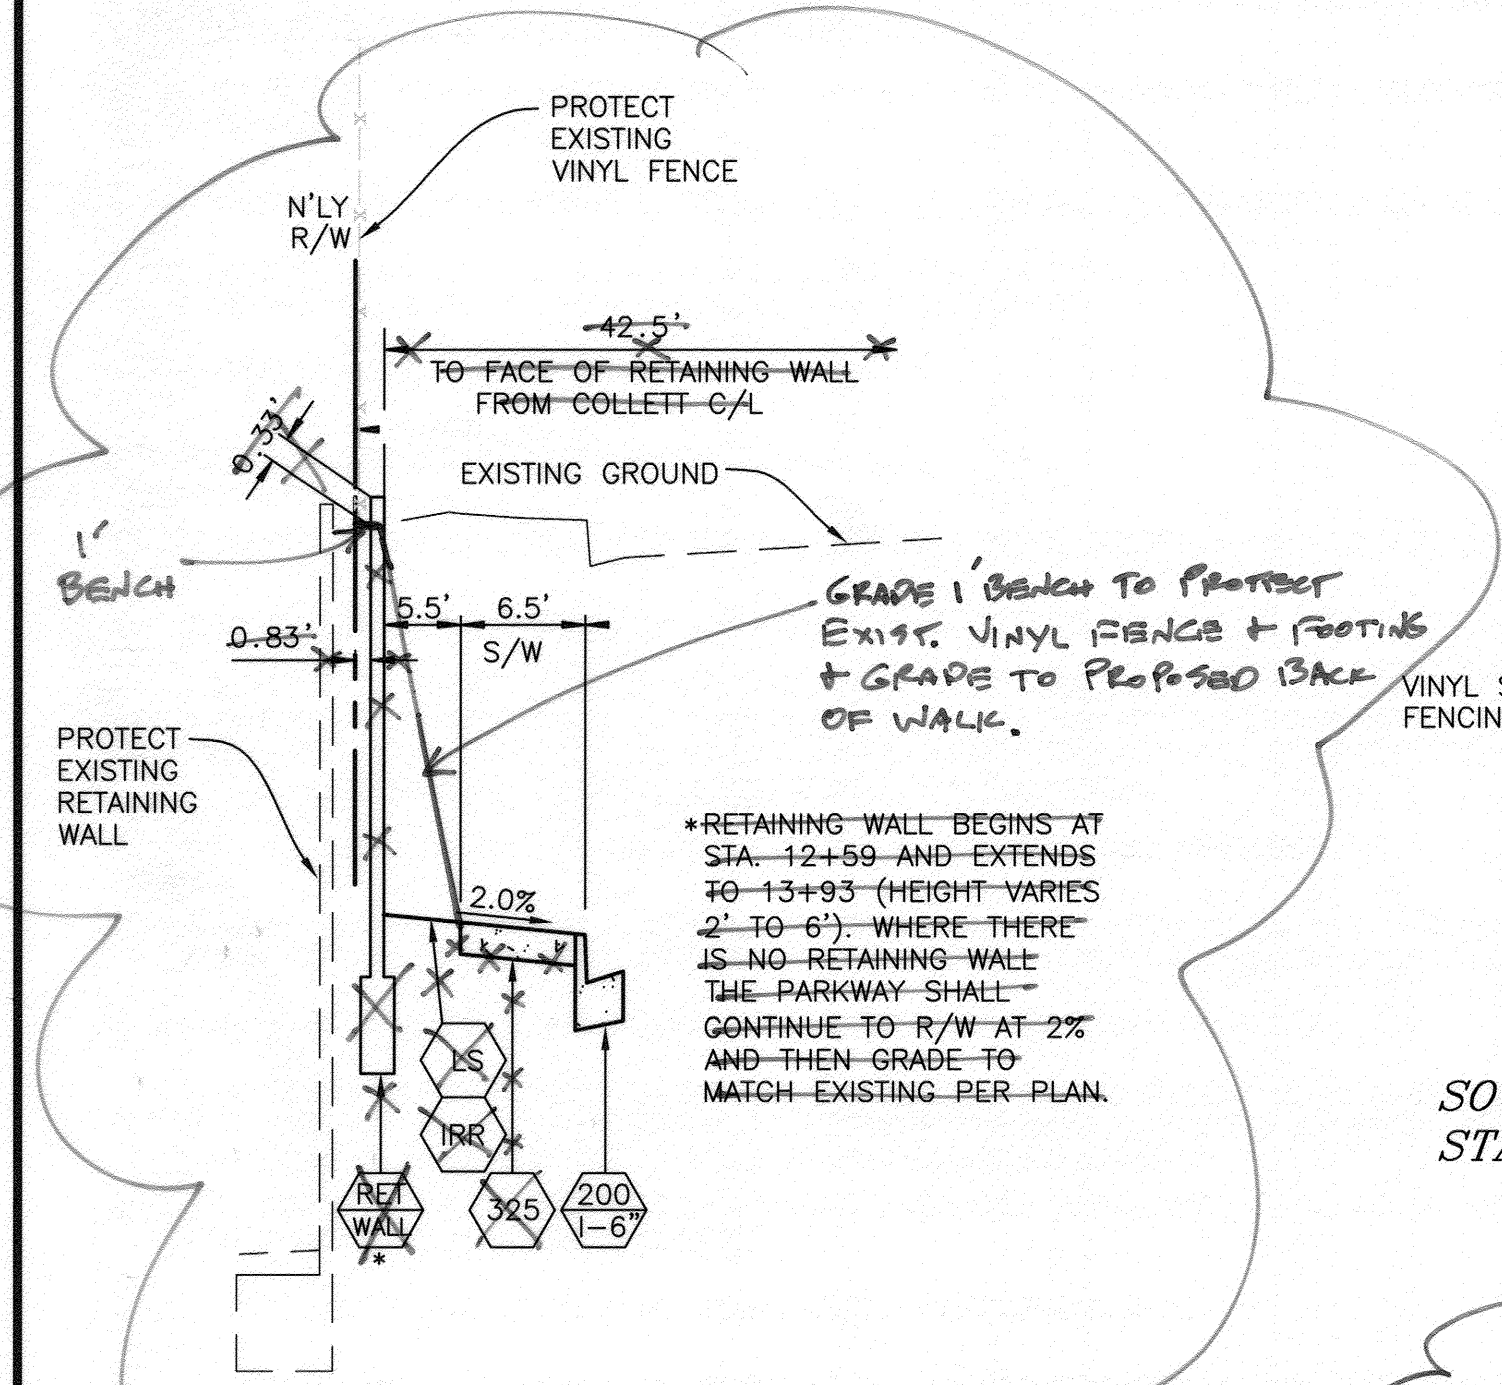 PROTECT
EXISTING
VINYL FENCE
N'LY
R/W
42.5'
TO FACE OF RETAINING WALL
FROM COLLETT C/L
0.33'
EXISTING GROUND
1'
BENCH
GRADE 1' BENCH TO PROTECT
EXIST. VINYL FENCE + FOOTING
+ GRADE TO PROPOSED BACK
OF WALK.
5.5'
6.5'
S/W
0.83'
VINYL S
FENCIN
PROTECT
EXISTING
RETAINING
WALL
*RETAINING WALL BEGINS AT
STA. 12+59 AND EXTENDS
TO 13+93 (HEIGHT VARIES
2' TO 6'). WHERE THERE
IS NO RETAINING WALL
THE PARKWAY SHALL
CONTINUE TO R/W AT 2%
AND THEN GRADE TO
MATCH EXISTING PER PLAN.
2.0%
LS
IRR
RET
WALL
*
325
200
1-6"
SO
STA